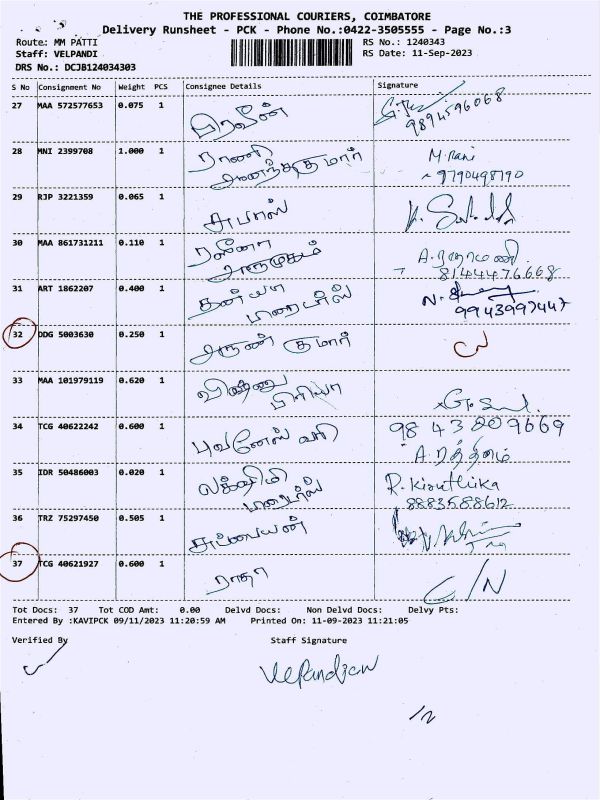 THE PROFESSIONAL COURIERS, COIMBATORE
Delivery Runsheet - PCK - Phone No.:0422-3505555 - Page No.:3
Route: MM PATTI RS No.: 1240343
Staff: VELPANDI RS Date: 11-Sep-2023
DRS No.: DCJB124034303
S No Consignment No Weight PCS Consignee Details Signature
27 MAA 572577653 0.075 1 பிரவீன்
9894596068
28 MNI 2399708 1.000 1 ராணி M. Rani
ஆனந்தகுமார் 9790498190
29 RJP 3221359 0.065 1
30 MAA 861731211 0.110 1 A. ரதாமணி
ஆறுமுகம் 8144476668
31 ART 1862207 0.400 1
9943997447
32 DDG 5003630 0.250 1 அருண் குமார்
33 MAA 101979119 0.620 1 விஷ்ணு
பிரியா
34 TCG 40622242 0.600 1 புவனேஸ்வரி 98 43 209669
A. ரத்தினம்
35 IDR 50486003 0.020 1 லக்ஷ்மி R. Kiruthika
8883588612
36 TRZ 75297450 0.505 1 சுப்பையன்
37 TCG 40621927 0.600 1 ராதா C/N
Tot Docs: 37 Tot COD Amt: 0.00 Delvd Docs: Non Delvd Docs: Delvy Pts:
Entered By :KAVIPCK 09/11/2023 11:20:59 AM Printed On: 11-09-2023 11:21:05
Verified By Staff Signature
VelPandian